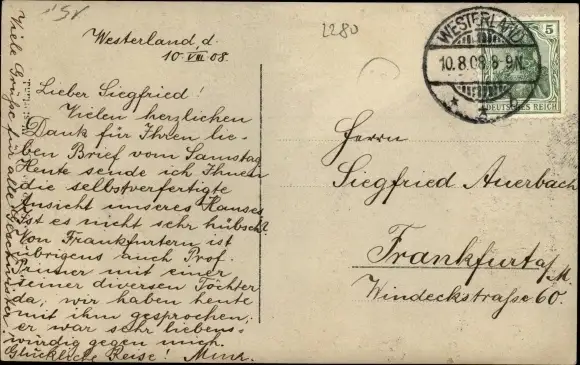 "SV
2280
Westerland, d.
10. VIII. 08.
Lieber Siegfried!
Vielen herzlichen
Dank für Ihren lie-
ben Brief vom Samstag
Heute sende ich Ihnen
die selbstverfertigte
Ansicht unseres Hauses
Ist es nicht sehr hübsch?
Von Frankfurtern ist
übrigens auch Prof.
mit einer
seiner diversen Töchter
da; wir haben heute
mit ihm gesprochen;
er war sehr liebens-
würdig gegen mich.
Glückliche Reise!
Viele Grüße für alle Geschwister
WESTERLAND
10.8.08 8-9N.
* 2 *
5
DEUTSCHES REICH
Herrn
Siegfried Auerbach
Frankfurt a/M.
Windeckstraße 60.